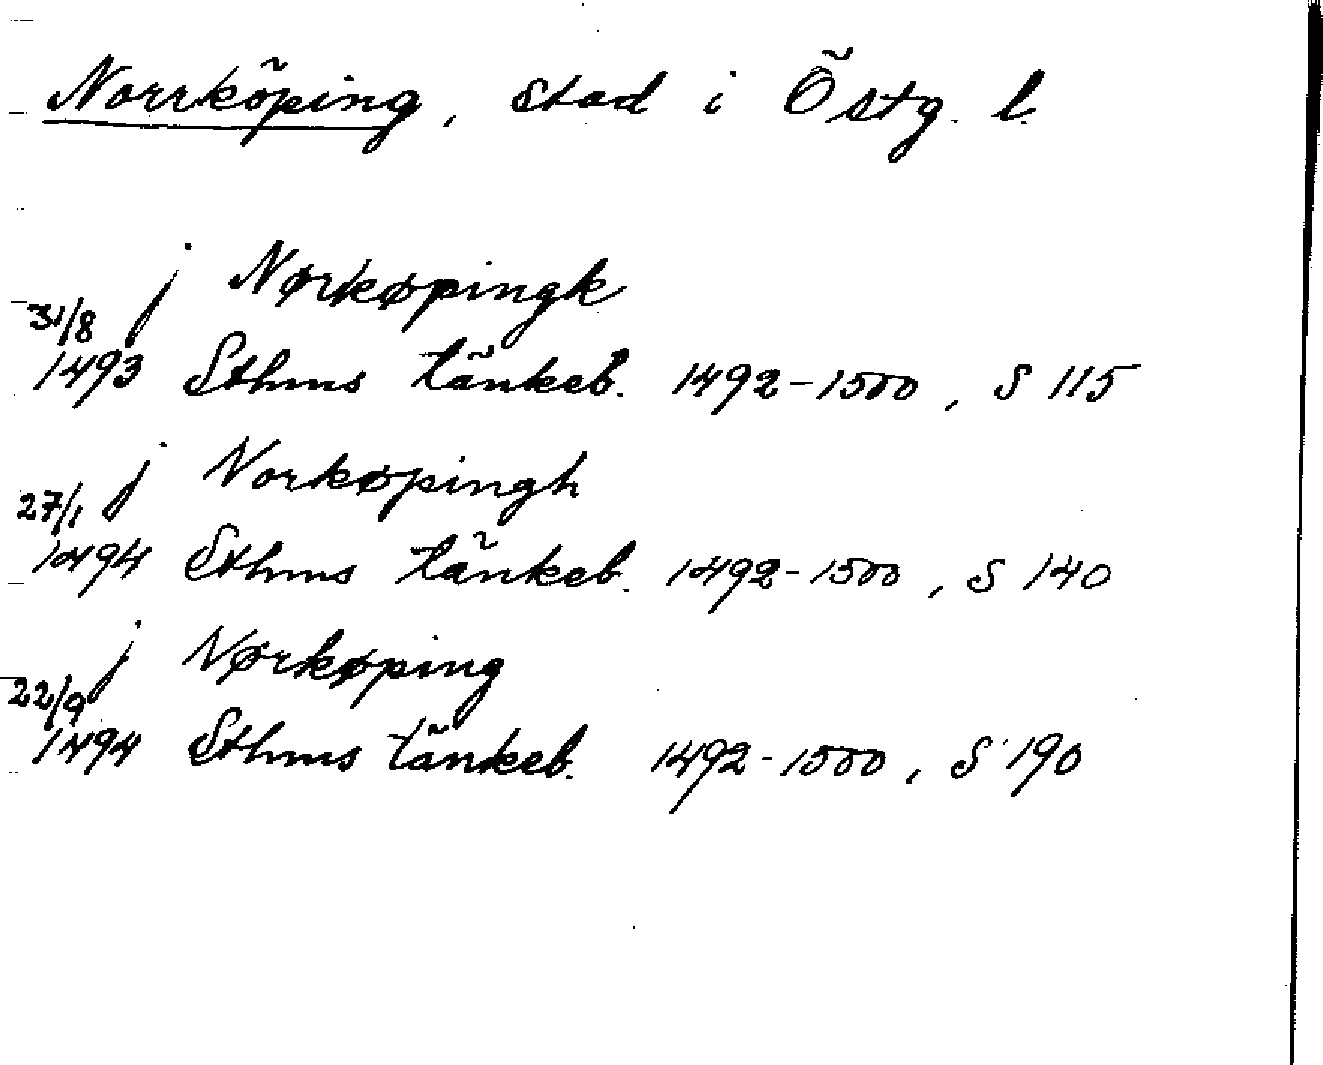 Norrköping, stad i Östg. l.
j Nørkøpingk
31/8
1493 Sthms tänkeb. 1492-1500, S 115
j Norkøpingh
27/1
1494 Sthms tänkeb. 1492-1500, S 140
j Nørkøping
22/9
1494 Sthms tänkeb. 1492-1500, S 190